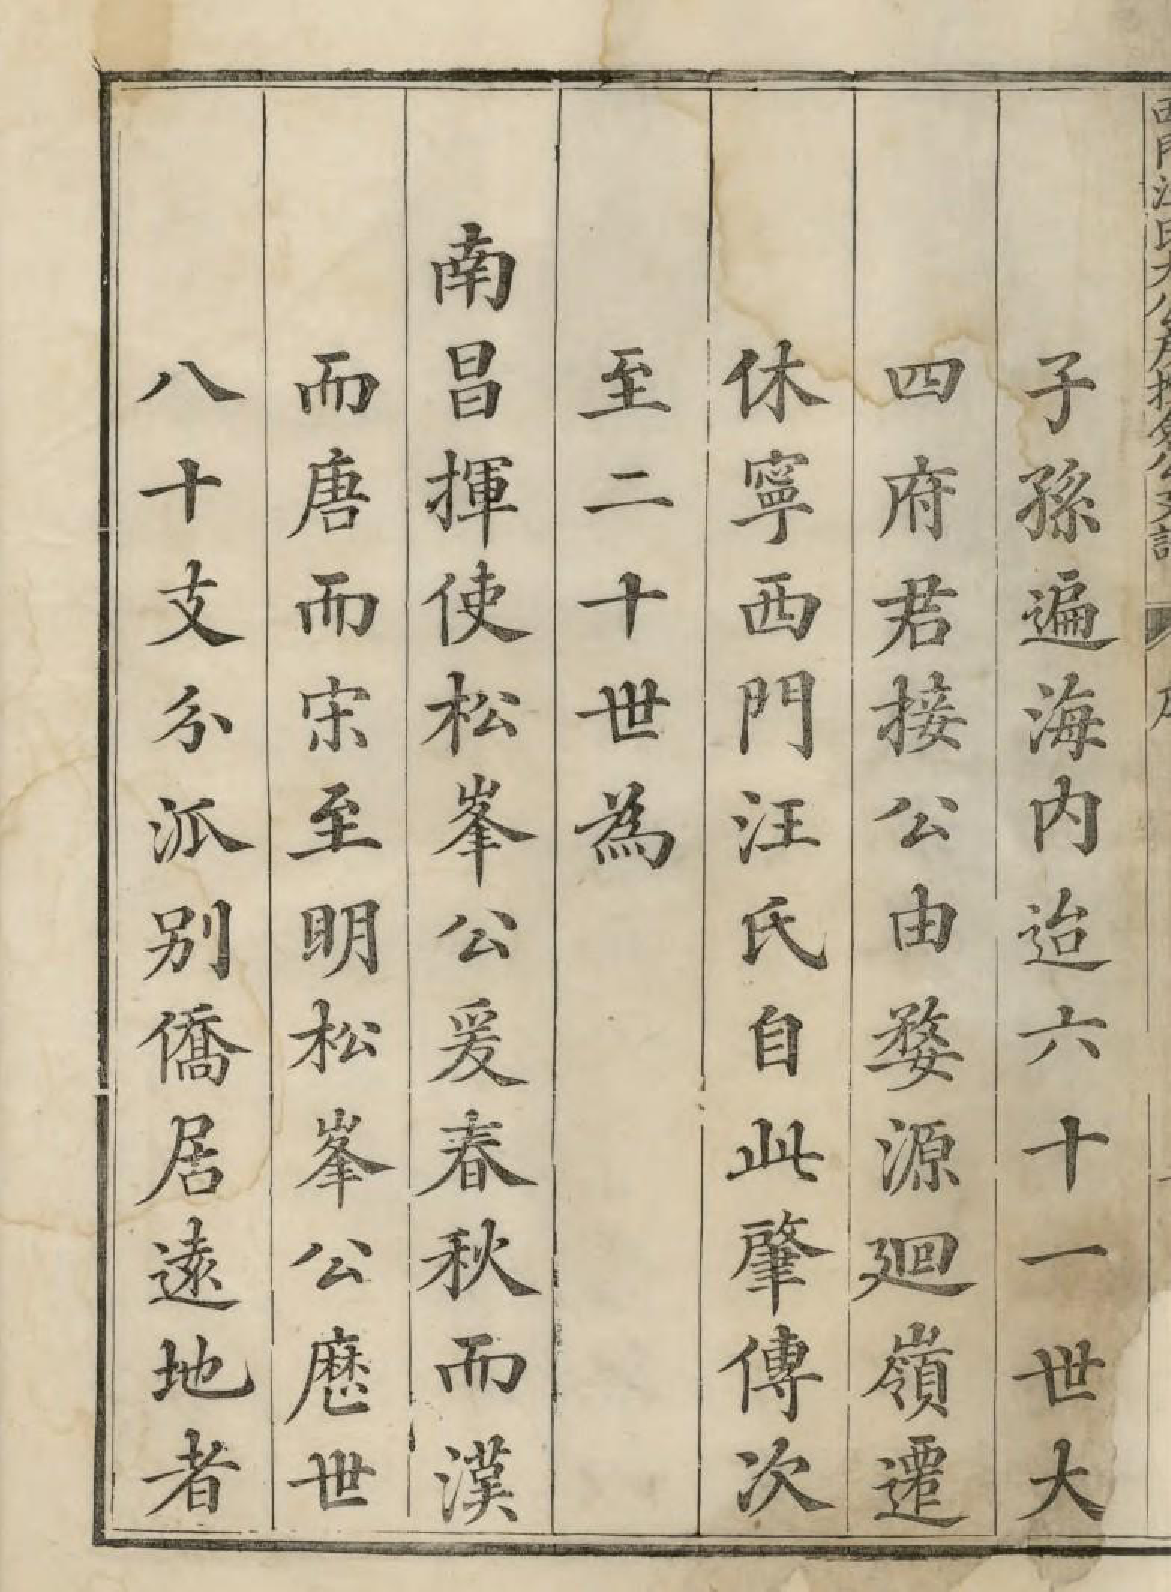 西門汪氏大公房揮僉公支譜
序
子孫遍海内迨六十一世大
四府君接公由婺源廻嶺遷
休寧西門汪氏自此肇傳次
至二十世為
南昌揮使松峯公爰春秋而漢
而唐而宋至明松峯公歷世
八十支分派别僑居遠地者